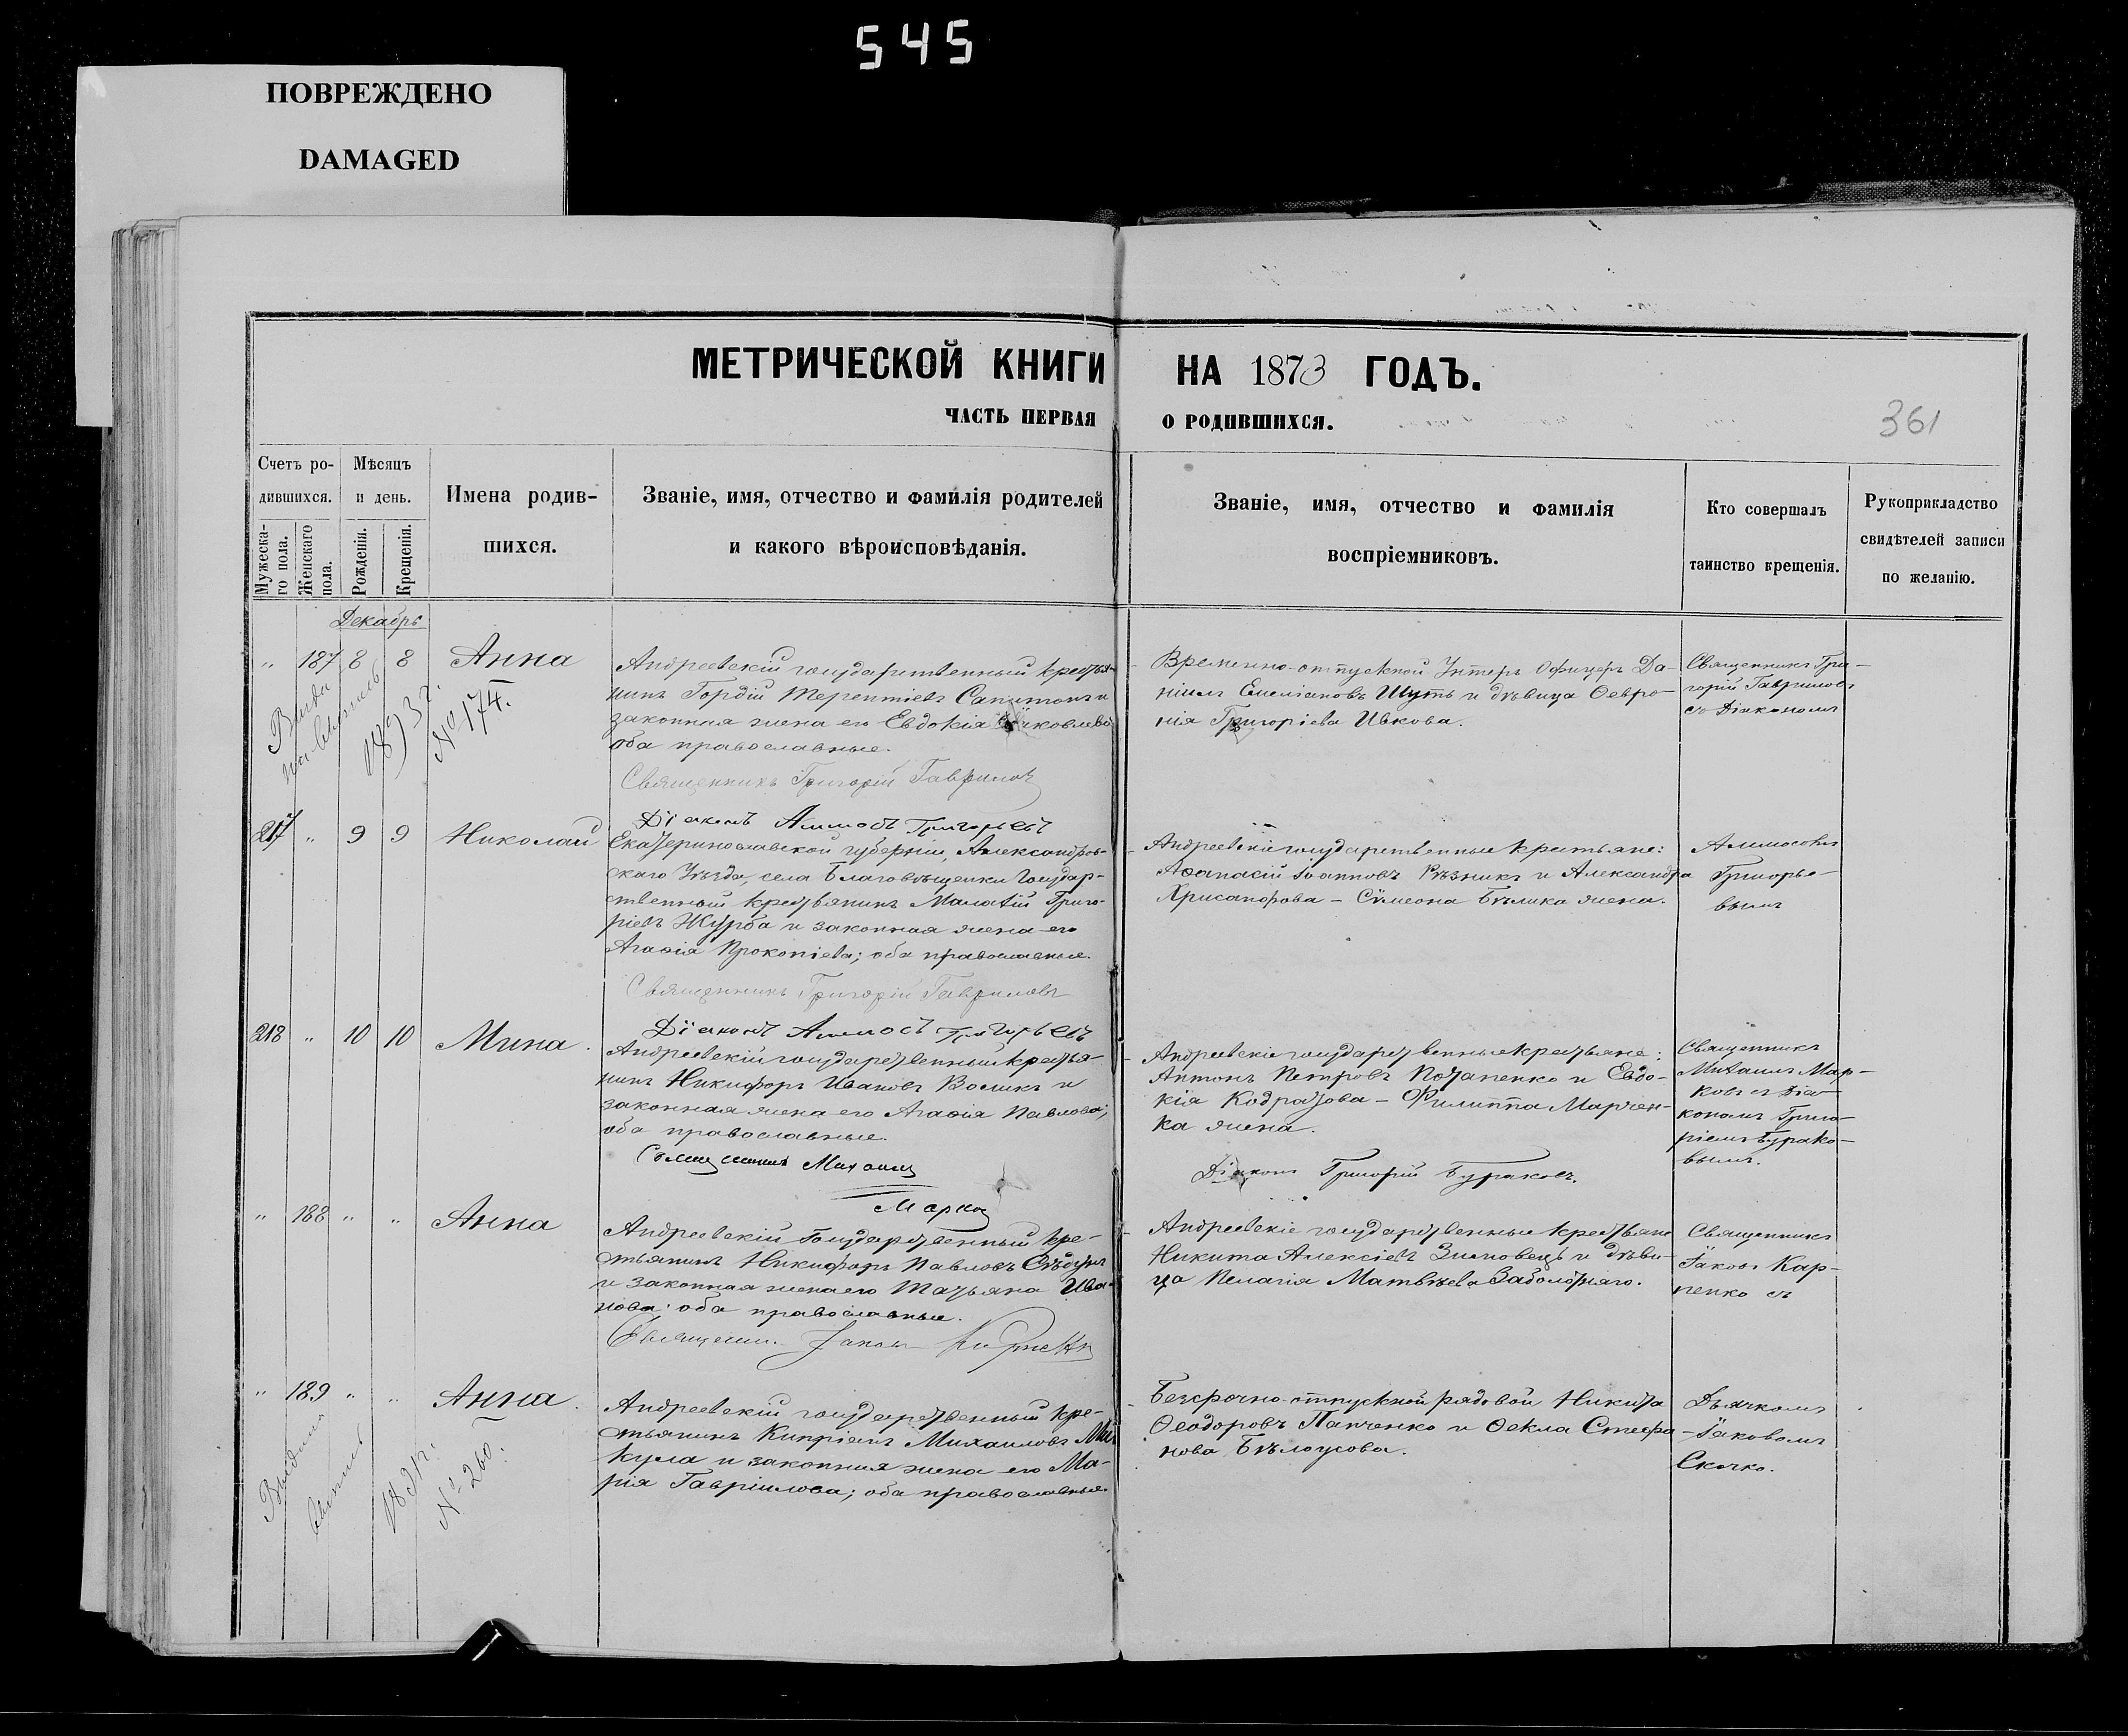 545
ПОВРЕЖДЕНО
DAMAGED
МЕТРИЧЕСКОЙ КНИГИ НА 1873 ГОДЪ.
ЧАСТЬ ПЕРВАЯ О РОДИВШИХСЯ.
361
Счетъ ро-
дившихся.
Мужеска-
го пола.
Женскаго
пола.
Мѣсяцъ
и день.
Рожденія.
Крещенія.
Имена родив-
шихся.
Званіе, имя, отчество и фамилія родителей
и какого вѣроисповѣданія.
Званіе, имя, отчество и фамилія
воспріемниковъ.
Кто совершалъ
таинство крещенія.
Рукоприкладство
свидѣтелей записи
по желанію.
Декабрь
" 187 8 8 Анна
1893 г.
№ 174.
Андреевскій государственный крестья-
нинъ Гордій Терентіевъ и
законная жена его Евдокія Яковлева
оба православные.
Священникъ Григорій Гавриловъ
Діаконъ Аммосъ Григорьевъ
Временно-отпускной Унтеръ Офицеръ Да-
ніилъ Емеліановъ Шуть и дѣвица Февро-
нія Григоріева Ивкова.
Священникъ Гри-
горій Гавриловъ
съ Діакономъ
217 " 9 9 Николай
Екатеринославской губерніи, Александров-
скаго Уѣзда, села Благовѣщенки Государ-
ственный крестьянинъ Малафій Григо-
ріевъ Журба и законная жена его
Агафія Прокопіева; оба православные.
Священникъ Григорій Гавриловъ
Діаконъ Аммосъ Григорьевъ
Андреевскіе государственные крестьяне:
Афанасій Іоанновъ Рѣзникъ и Александра
Хрисанфова - Сѵмеона Бѣлика жена.
Аммосомъ
Григорье-
вымъ
218 " 10 10 Мина.
Андреевскій государственный крестья-
нинъ Никифоръ Ивановъ Воликъ и
законная жена его Агафія Павлова;
оба православные.
Священникъ Михаилъ
Марковъ
Андреевскіе государственные крестьяне:
Антонъ Петровъ Потапенко и Евдо-
кія Кодратова - Филиппа Марчен-
ка жена.
Діаконъ Григорій Бураковъ.
Священникъ
Михаилъ Мар-
ковъ съ Діа-
кономъ Григо-
ріемъ Бурако-
вымъ.
" 188 " " Анна
Андреевскій Государственный кре-
стьянинъ Никифоръ Павловъ
и законная жена его Татьяна Ива-
нова: оба православные.
Священник. Іаковъ Карпенко
Андреевскіе государственные крестьяне
Никита Алексіевъ Зиновецъ и дѣви-
ца Пелагія Матвѣева Заболотняго.
Священникъ
Іаковъ Кар-
пенко съ
" 189 " " Анна.
№ 260.
Андреевскій государственный кре-
стьянинъ Кипріанъ Михаиловъ Ми-
кула и законная жена его Ма-
рія Гавріилова; оба православные.
Безсрочно-отпускной рядовой Никита
Феодоровъ Панченко и Фекла Стефа-
нова Бѣлоусова.
Дьячкомъ
Іаковомъ
Скочко.